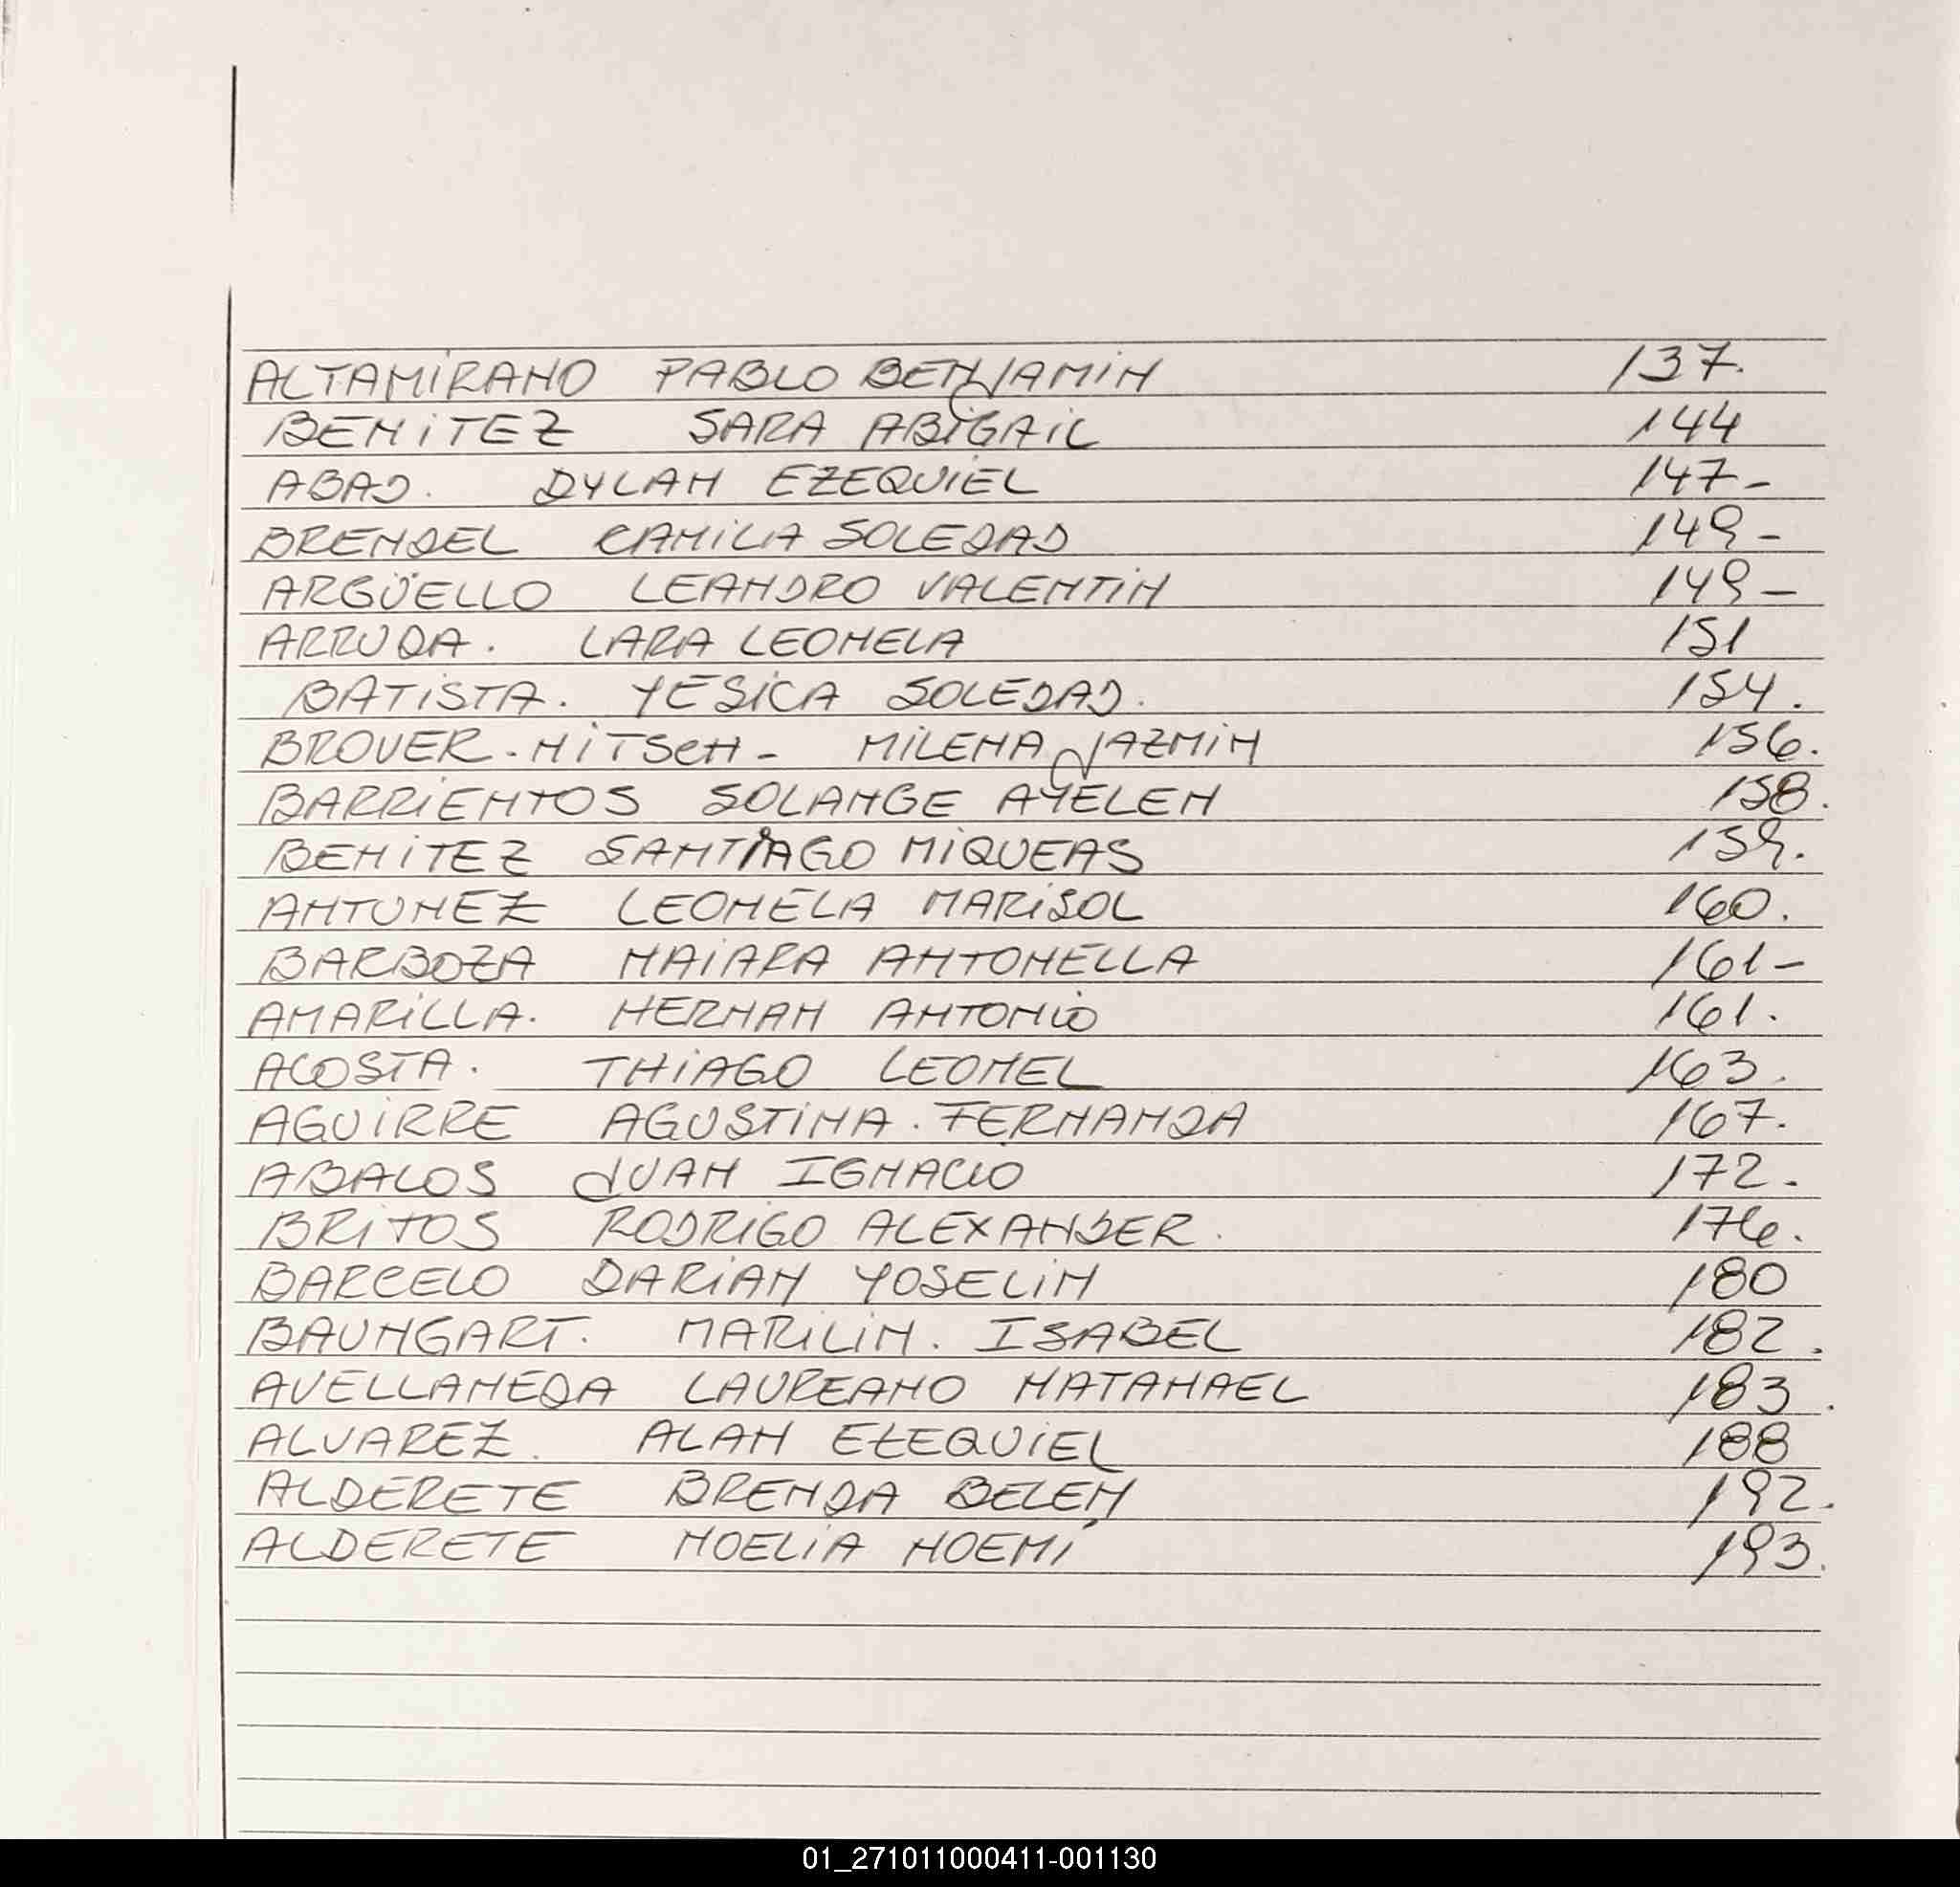 ALTAMIRANO PABLO BENJAMIN 137.
BENITEZ SARA ABIGAIL 144
ABAD. DYLAN EZEQUIEL 147-
BRENDEL CAMILA SOLEDAD 149-
ARGÜELLO LEANDRO VALENTIN 149-
ARRUDA. LARA LEONELA 151
BATISTA. YESICA SOLEDAD. 154.
BROUER-NITSCH- MILENA JAZMIN 156.
BARRIENTOS SOLANGE AYELEN 158.
BENITEZ SANTIAGO MIQUEAS 159.
ANTUNEZ LEONELA MARISOL 160.
BARBOZA NAIARA ANTONELLA 161-
AMARILLA. HERNAN ANTONIO 161.
ACOSTA. THIAGO LEONEL 163.
AGUIRRE AGUSTINA. FERNANDA 167.
ABALOS JUAN IGNACIO 172.
BRITOS RODRIGO ALEXANDER. 176.
BARCELO DARIAN YOSELIN 180
BAUMGART. MARILIN. ISABEL 182.
AVELLANEDA LAUREANO NATANAEL 183.
ALVAREZ. ALAN EZEQUIEL 188
ALDERETE BRENDA BELEN 192.
ALDERETE NOELIA NOEMÍ 193.
01_271011000411-001130